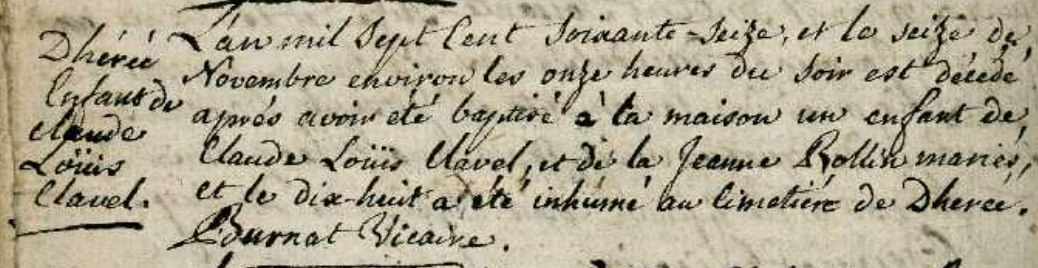 Dhéréé
Enfant de
claude
Loüis
Clavel.
L'an mil sept Cent soixante-seize, et le seize de
Novembre environ les onze heures du soir est décédé
aprés avoir été baptisé à la maison un enfant de
Claude Loüis Clavel, et de la Jeanne Rollin mariés,
et le dix-huit a été inhumé au Cimetiére de Dhereé.
Pournat Vicaire.